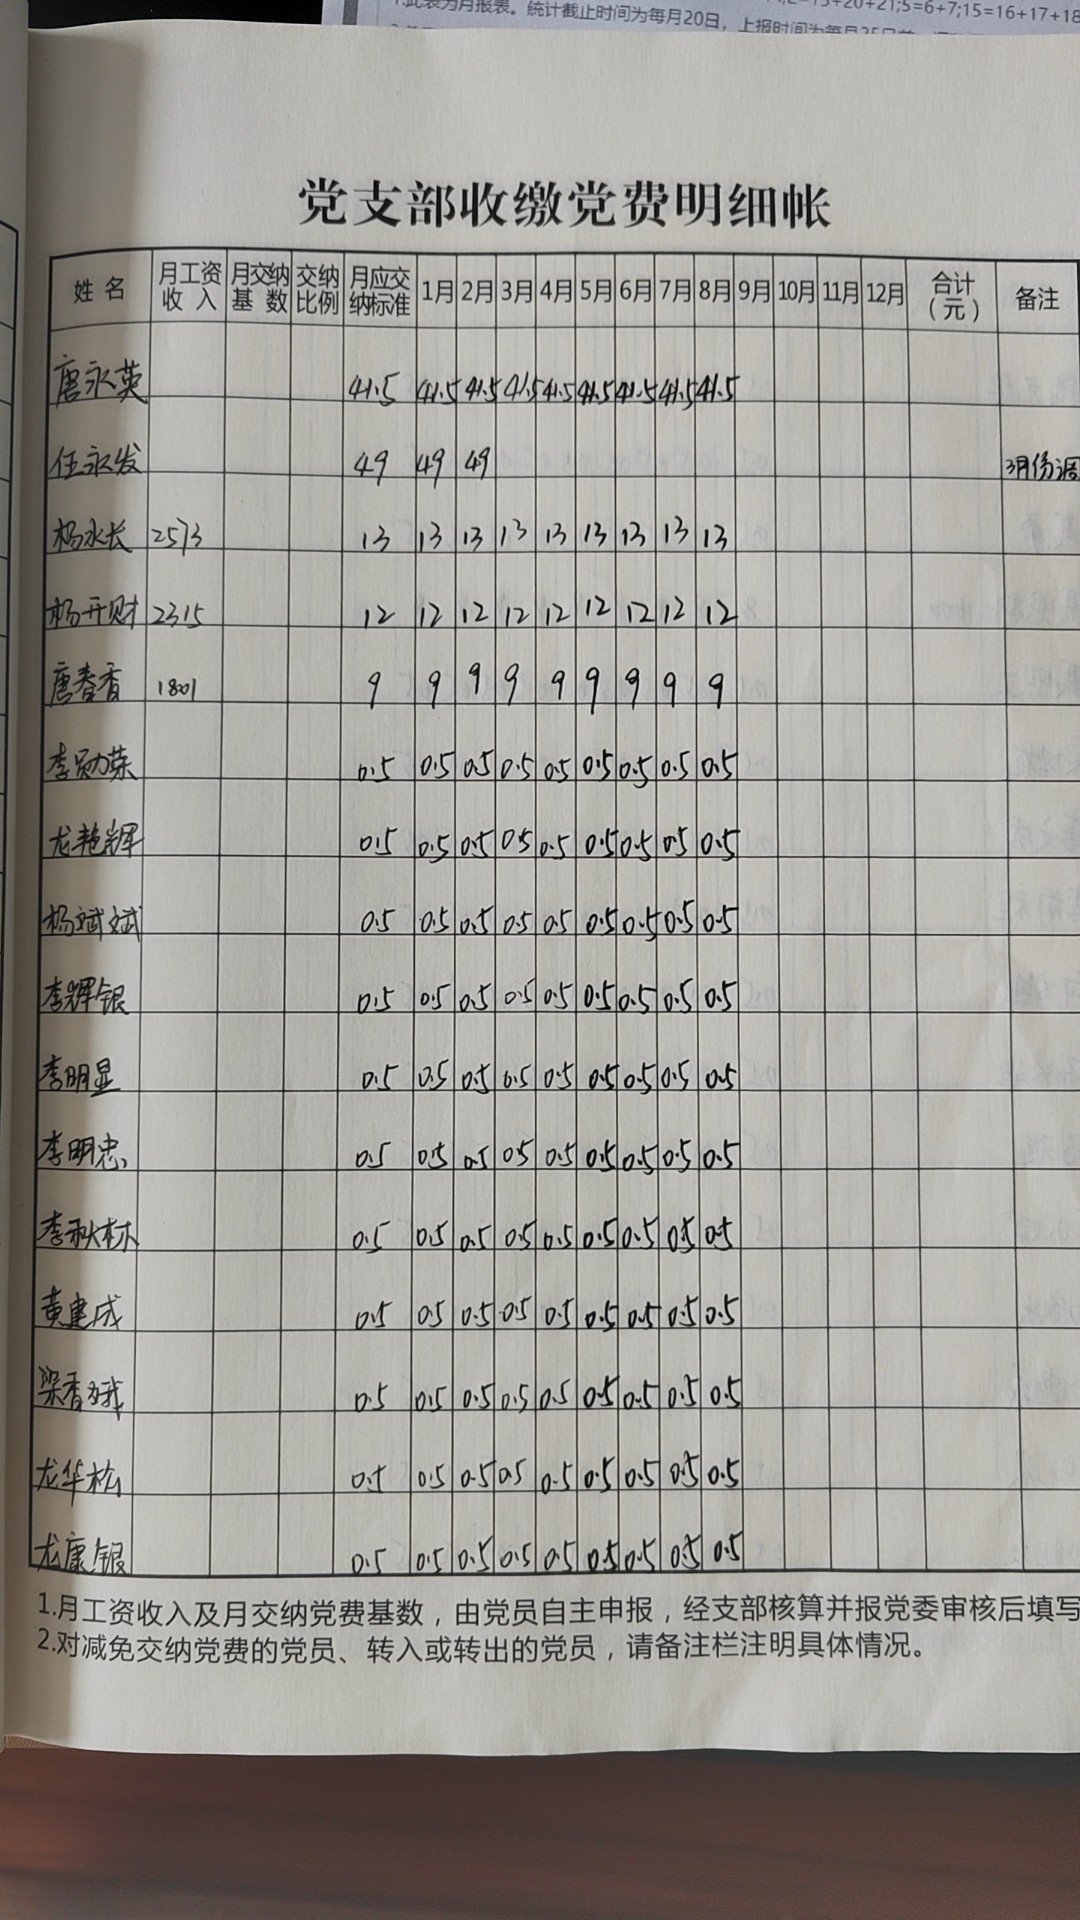 1.此表为月报表。统计截止时间为每月20日，上报时间为每月25日前
+20+21;5=6+7;15=16+17+18
党支部收缴党费明细帐
姓名 月工资收入 月交纳基数 交纳比例 月应交纳标准 1月 2月 3月 4月 5月 6月 7月 8月 9月 10月 11月 12月 合计（元） 备注
唐永英 41.5 41.5 41.5 41.5 41.5 41.5 41.5 41.5 41.5
任永发 49 49 49 3月份调
杨永长 2573 13 13 13 13 13 13 13 13 13
杨开财 2315 12 12 12 12 12 12 12 12 12
唐春香 1801 9 9 9 9 9 9 9 9 9
李勋荣 0.5 0.5 0.5 0.5 0.5 0.5 0.5 0.5 0.5
龙艳辉 0.5 0.5 0.5 0.5 0.5 0.5 0.5 0.5 0.5
杨斌斌 0.5 0.5 0.5 0.5 0.5 0.5 0.5 0.5 0.5
李辉银 0.5 0.5 0.5 0.5 0.5 0.5 0.5 0.5 0.5
李明显 0.5 0.5 0.5 0.5 0.5 0.5 0.5 0.5 0.5
李明忠 0.5 0.5 0.5 0.5 0.5 0.5 0.5 0.5 0.5
李秋林 0.5 0.5 0.5 0.5 0.5 0.5 0.5 0.5 0.5
黄建成 0.5 0.5 0.5 0.5 0.5 0.5 0.5 0.5 0.5
梁香娥 0.5 0.5 0.5 0.5 0.5 0.5 0.5 0.5 0.5
龙华松 0.5 0.5 0.5 0.5 0.5 0.5 0.5 0.5 0.5
龙康银 0.5 0.5 0.5 0.5 0.5 0.5 0.5 0.5 0.5
1.月工资收入及月交纳党费基数，由党员自主申报，经支部核算并报党委审核后填写
2.对减免交纳党费的党员、转入或转出的党员，请备注栏注明具体情况。